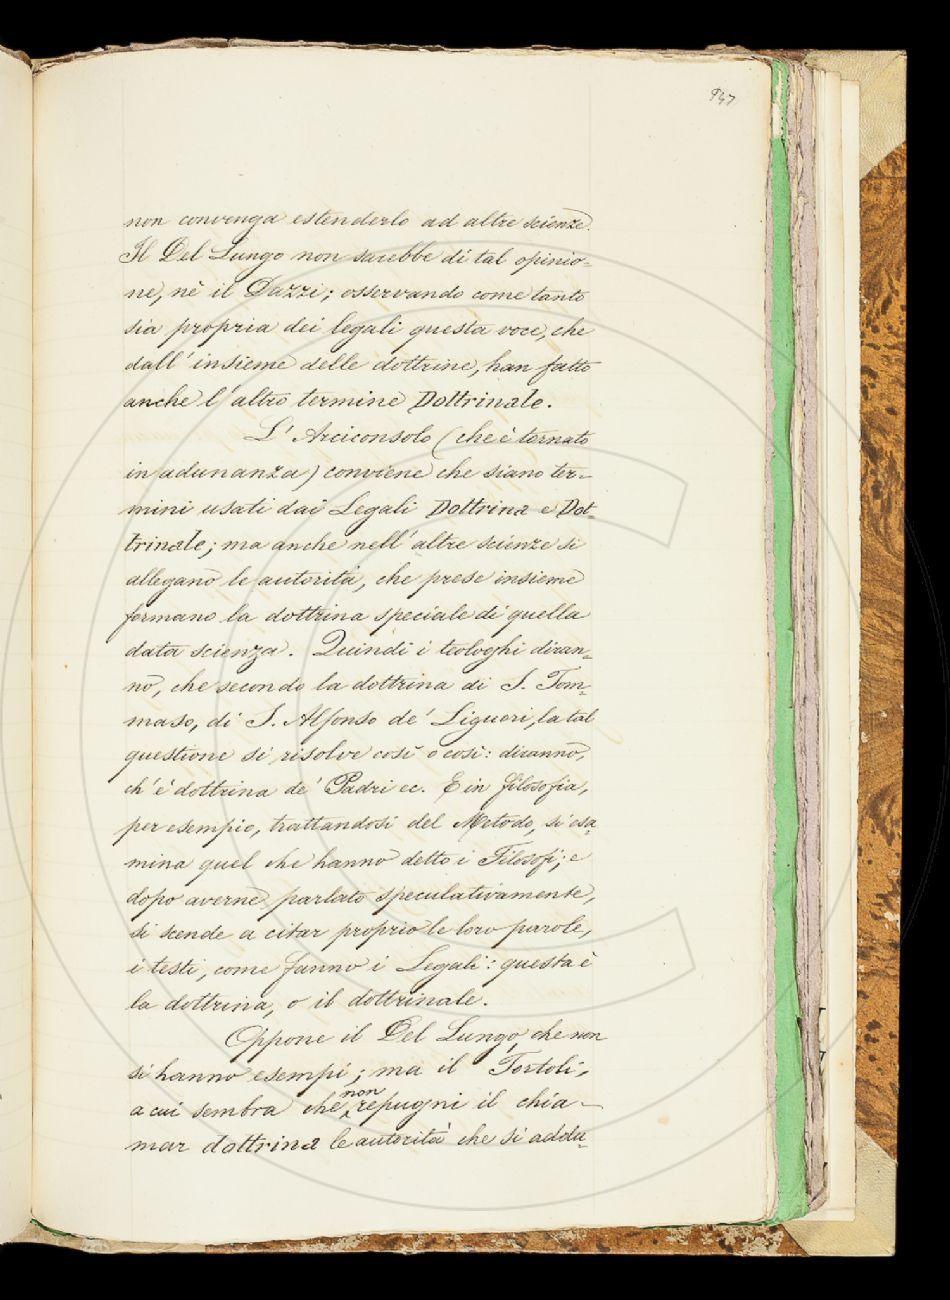 947
non convenga estenderlo ad altre scienze.
Il Del Lungo non sarebbe di tal opinio=
ne, nè il Dazzi; osservando come tanto
sia propria dei legali questa voce, che
dall'insieme delle dottrine, han fatto
anche l'altro termine Dottrinale.
L'Arciconsolo (che è tornato
in adunanza) conviene che siano ter=
mini usati dai Legali Dottrina e Dot=
trinale; ma anche nell'altre scienze si
allegano le autorità, che prese insieme
formano la dottrina speciale di quella
data scienza. Quindi i teologhi diran=
no, che secondo la dottrina di S. Tom=
maso, di S. Alfonso de' Liguori, la tal
questione si risolve così o così: diranno,
ch'è dottrina de' Padri ec. E in filosofia,
per esempio, trattandosi del Metodo, si esa=
mina quel che hanno detto i Filosofi; e
dopo averne parlato speculativamente,
si scende a citar proprio le loro parole,
i testi, come fanno i Legali: questa è
la dottrina, o il dottrinale.
Oppone il Del Lungo, che non
si hanno esempi; ma il Tortoli,
a cui sembra che non repugni il chia=
mar dottrina le autorità che si addu=